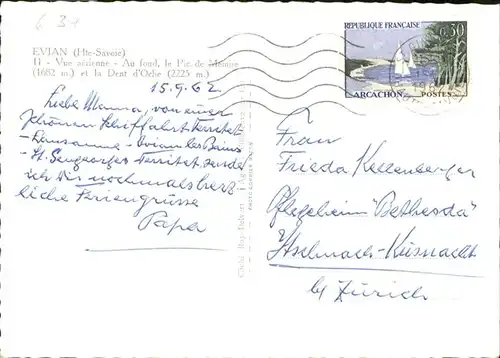 EVIAN (Hte-Savoie)
11 - Vue aérienne - Au fond, le Pic de Mémise
(1682 m.) et la Dent d'Oche (2225 m.)
15.9.62
Liebe Mamma, von einer
schönen Schiffahrt Territet
- Lausanne - Evian les Bains
- St. Gingolf - Territet sende
ich Dir nochmals herz
liche Feriengrüsse
Papa
REPUBLIQUE FRANÇAISE
0,30
ARCACHON POSTES
Frau
Frieda Kellenberger
Pflegeheim "Bethesda"
Itschnach-Küsnacht
b/ Zürich